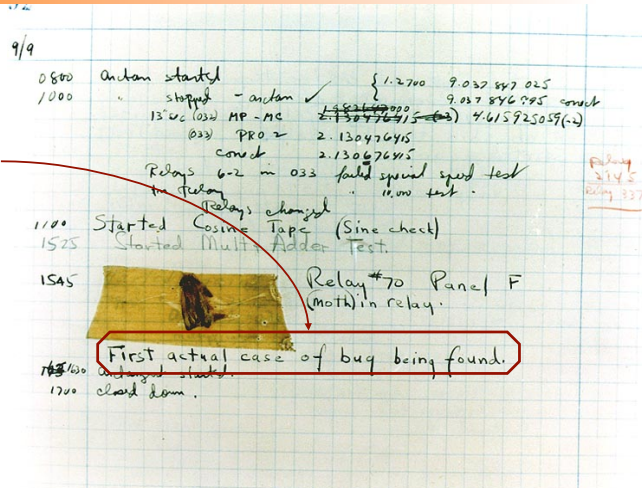 9/9
0800 Antan started { 1.2700 9.037 847 025
1000 " stopped - antan ✓ 9.037 846 995 correct
13"uc (032) MP - MC 2.130476415 (-3) 4.615925059(-2)
(033) PRO 2 2.130476415
correct 2.130676415
Relays 6-2 in 033 failed special speed test
in Relay " 10,000 test.
Relays changed
Relay
2145
Relay 337
1100 Started Cosine Tape (Sine check)
1525 Started Mult + Adder Test.
1545 Relay #70 Panel F
(moth) in relay.
First actual case of bug being found.
1630 antangent started.
1700 closed down.